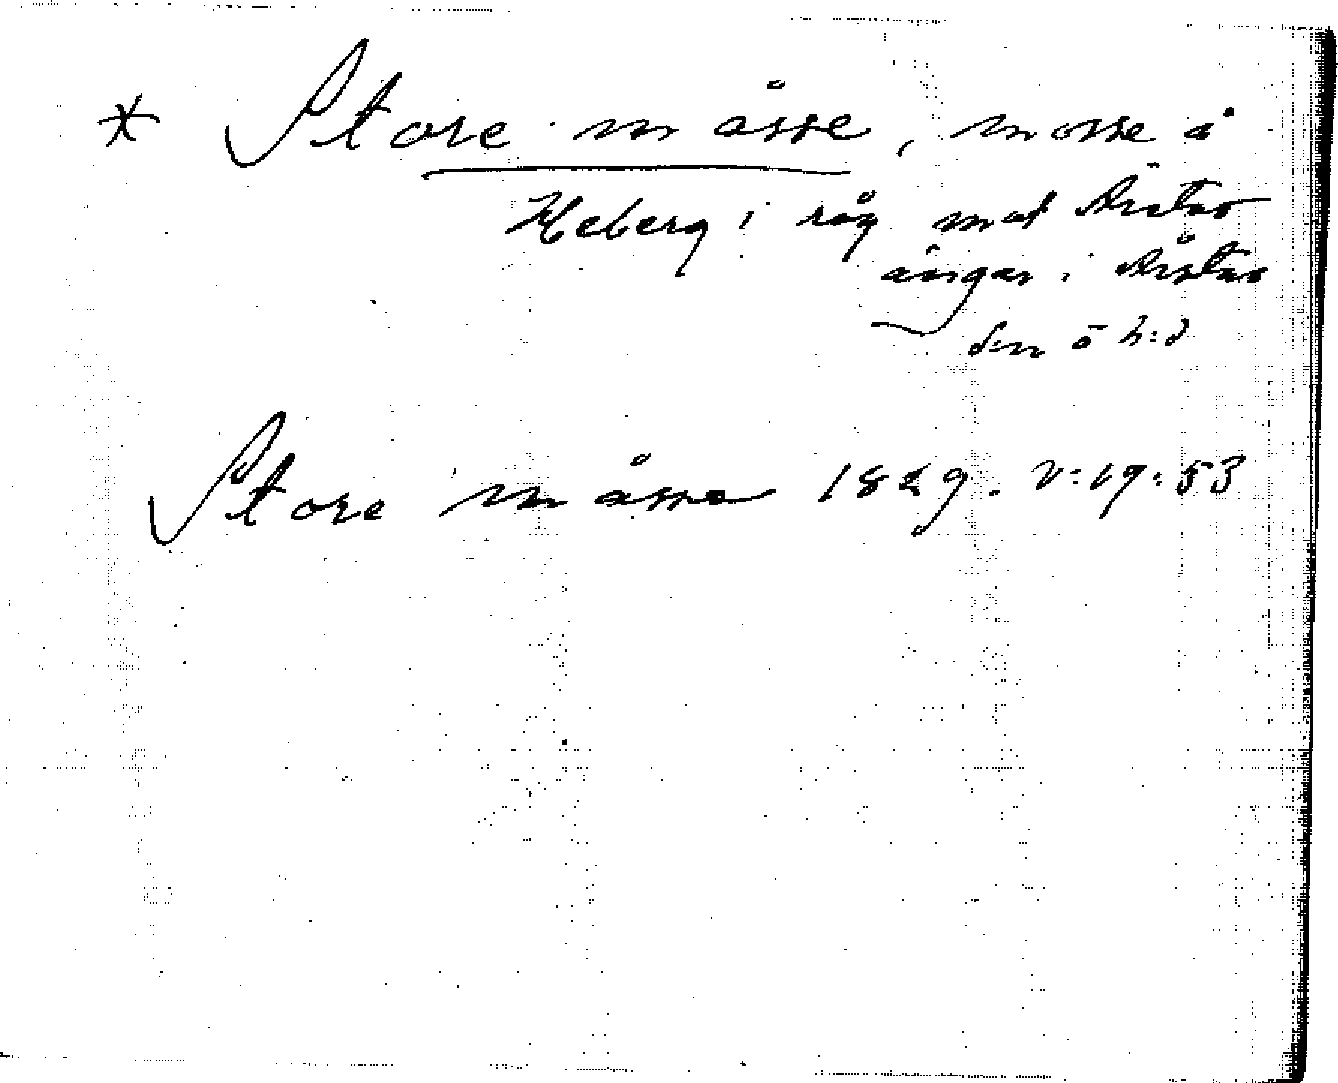 * Store måsse, mosse å
Heberg i råg med Årstad
ängar i Årstad
sn o h:d
Store måsse 1829. V:19:53